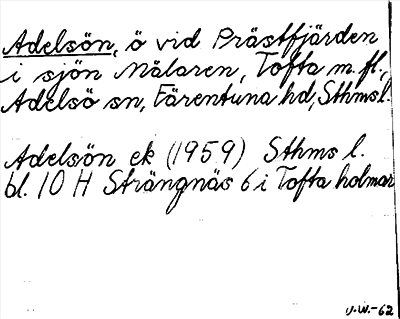 Adelsön, ö vid Prästfjärden
i sjön Mälaren, Tofta m. fl.,
Adelsö sn, Färentuna hd, Sthms l.
Adelsön ek (1959) Sthms l.
bl. 10 H Strängnäs 6 i Tofta holmar
U.W.-62